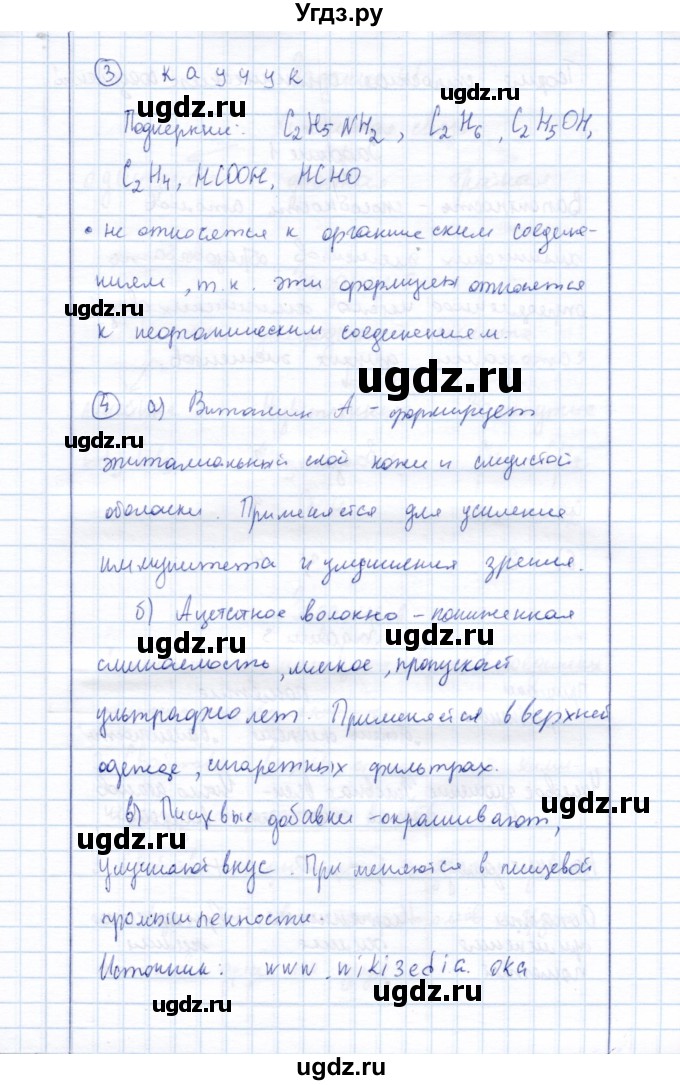 Угдз.ру
③ каучук
ugdz.ru ugdz.ru
Подчеркни: C2H5NH2, C2H6, C2H5OH,
C2H4, HCOOH, HCHO
• не относятся к органическим соедине-
ниям, т.к. эти формулы относятся
ugdz.ru
к неорганическим соединениям.
ugdz.ru
④ а) Витамин А - формирует
ugdz.ru
эпиталиальный слой кожи и слизистой
оболочки. Применяется для усиления
ugdz.ru ugdz.ru
иммунитета и улучшения зрения.
б) Ацетатное волокно - пониженная
ugdz.ru ugdz.ru
сминаемость, мягкое, пропускает
ультрафиолет. Применяется в верхней
ugdz.ru
одежде, сигаретных фильтрах.
в) Пищевые добавки - окрашивают,
ugdz.ru ugdz.ru
улучшают вкус. Применяются в пищевой
промышленности
Источник: www.wikizedia.ока
ugdz.ru ugdz.ru
ugdz.ru